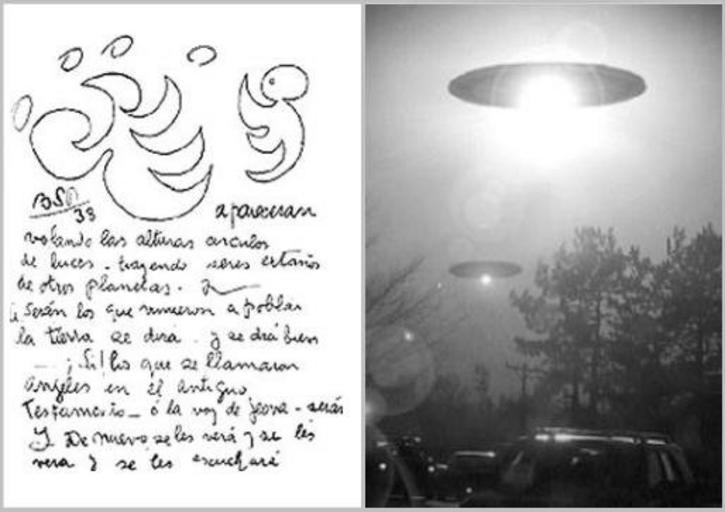 BSP
38
apareceran
volando las alturas circulos
de luces - trayendo seres extaños
de otros planetas.
Serán los que vinieron a poblar
la tierra se dirá - y se dirá bien
- ¡Si! los que se llamaron
angeles en el Antiguo
Testamento - o la voz de Jeova - serás
De nuevo se les verá y se les
vera y se les escuchará